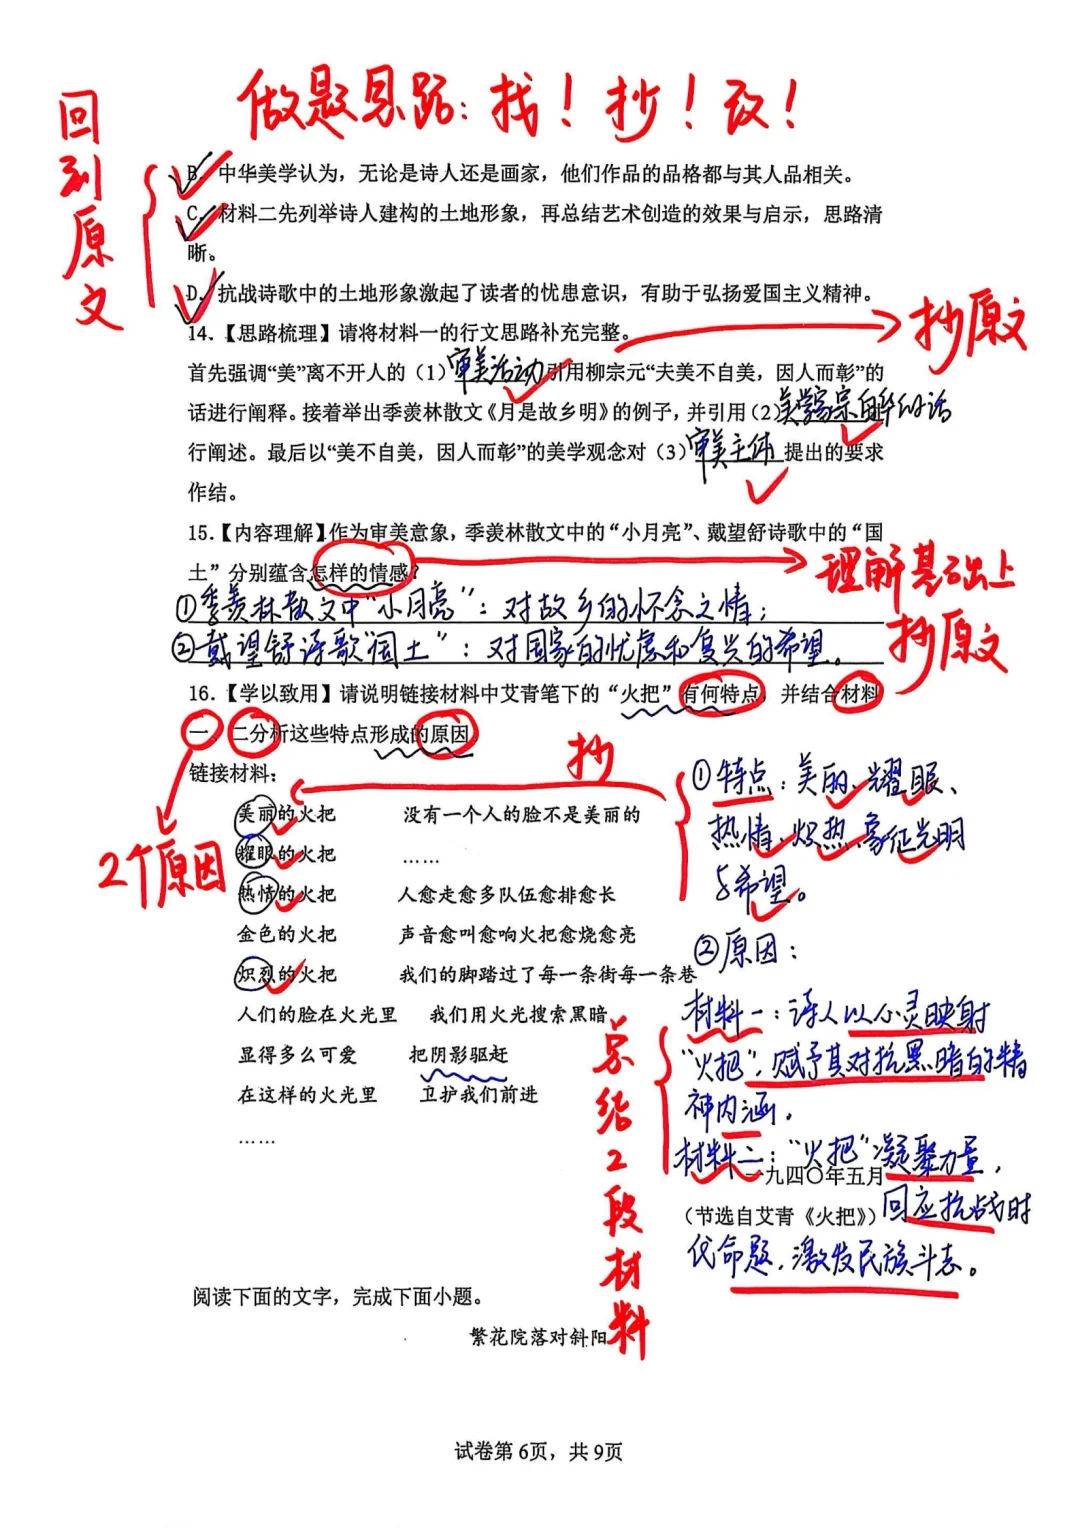 做题思路：找！抄！改！
回到原文
B．中华美学认为，无论是诗人还是画家，他们作品的品格都与其人品相关。
C．材料二先列举诗人建构的土地形象，再总结艺术创造的效果与启示，思路清
晰。
D．抗战诗歌中的土地形象激起了读者的忧患意识，有助于弘扬爱国主义精神。
14.【思路梳理】请将材料一的行文思路补充完整。
抄原文
首先强调“美”离不开人的（1）审美活动引用柳宗元“夫美不自美，因人而彰”的
话进行阐释。接着举出季羡林散文《月是故乡明》的例子，并引用（2）美学家宗白华的话
行阐述。最后以“美不自美，因人而彰”的美学观念对（3）审美主体 提出的要求
作结。
15.【内容理解】作为审美意象，季羡林散文中的“小月亮”、戴望舒诗歌中的“国
土”分别蕴含怎样的情感？
理解基础上
抄原文
①季羡林散文中“小月亮”：对故乡的怀念之情；
②戴望舒诗歌“国土”：对国家的忧虑和复兴的希望。
16.【学以致用】请说明链接材料中艾青笔下的“火把”有何特点，并结合材料
一、二分析这些特点形成的原因
抄
2个原因
链接材料：
美丽的火把 没有一个人的脸不是美丽的
耀眼的火把 ……
热情的火把 人愈走愈多队伍愈排愈长
金色的火把 声音愈叫愈响火把愈烧愈亮
炽烈的火把 我们的脚踏过了每一条街每一条巷
人们的脸在火光里 我们用火光搜索黑暗
显得多么可爱 把阴影驱赶
在这样的火光里 卫护我们前进
……
一九四〇年五月
（节选自艾青《火把》）
①特点：美丽、耀眼、
热情、炽热、象征光明
与希望。
②原因：
材料一：诗人以心灵映射
“火把”，赋予其对抗黑暗的精
神内涵。
材料二：“火把”凝聚力量，
回应抗战时
代命题，激发民族斗志。
总结2段材料
阅读下面的文字，完成下面小题。
繁花院落对斜阳
试卷第6页，共9页